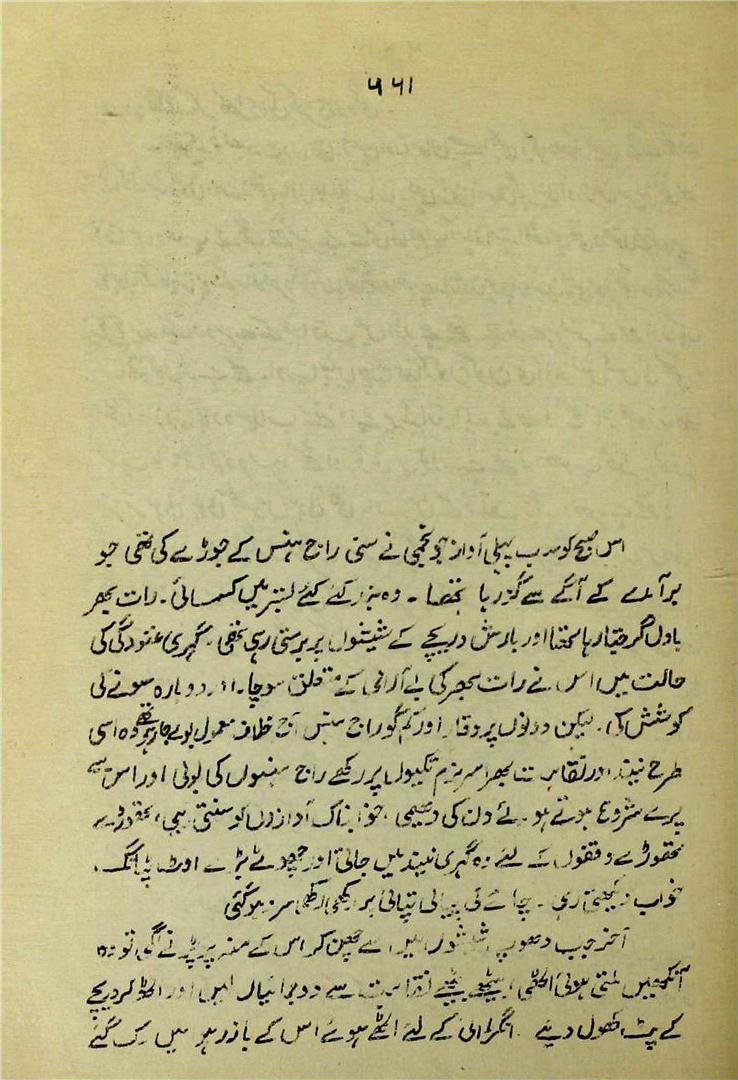 ۵۶۱
اس صبح کو سب پہلی آواز جو نجمی نے سنی راج ہنس کے جوڑے کی تھی جو
برآمدے کے آگے سے گزر رہا تھا۔ وہ بستر میں کسمسائی۔ رات بھر
بادل گرجتا رہا تھا اور بارش دریچے کے شیشوں پر برستی رہی تھی۔ گہری غنودگی کی
حالت میں اس نے رات بھر کی بے آرامی کے متعلق سوچا۔ اور دوبارہ سونے کی
کوشش کی۔ لیکن دونوں پروقار اور کم گو راج ہنس آج خلاف معمول بولے جا رہے تھے وہ اسی
طرح نیند اور نقاہت بھرا سر نرم تکیوں پر رکھے راج ہنسوں کی بولی اور اس سے
پرے شروع ہوتے ہوئے دن کی دھیمی، خوابناک آوازوں کو سنتی رہی، تھوڑے
تھوڑے وقفوں کے لئے وہ گہری نیند میں جاتی اور چھوٹے بڑے اوٹ پٹانگ،
خواب دیکھتی رہی۔ چائے کی پیالی تپائی پر رکھی رکھی سرد ہو گئی
آخر جب دھوپ شیشوں میں سے چھن کر اس کے منہ پر پڑنے لگی تو وہ
آنکھیں ملتی ہوئی اٹھی، بیٹھے بیٹھے نقاہت سے دو جمائیاں لیں اور اٹھ کر دریچے
کے پٹ کھول دیئے۔ انگڑائی کے لئے اٹھے ہوئے اس کے بازو ہوا میں رک گئے